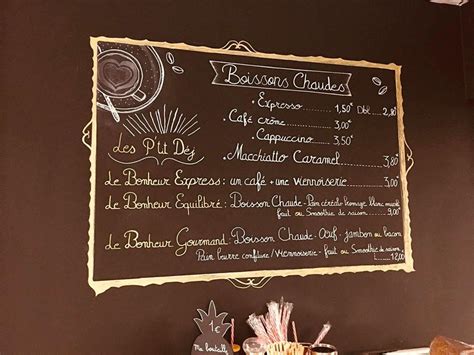 Boissons Chaudes
• Expresso ........ 1,50€ Dbl .... 2,80
• Café crème ............ 3,00€
• Cappuccino ............ 3,50€
• Macchiatto Caramel ............ 3,80€
Les P'tit Déj
Le Bonheur Express : un café + une viennoiserie ............ 3,00€
Le Bonheur Equilibré : Boisson Chaude - Pain céréale fromage blanc
fruit ou Smoothie de saison ........ 9,00€
Le Bonheur Gourmand - Boisson Chaude - Œuf - jambon ou bacon
Pain beurre confiture / Viennoiserie - fruit ou Smoothie de saison
12,00
1€
Ma